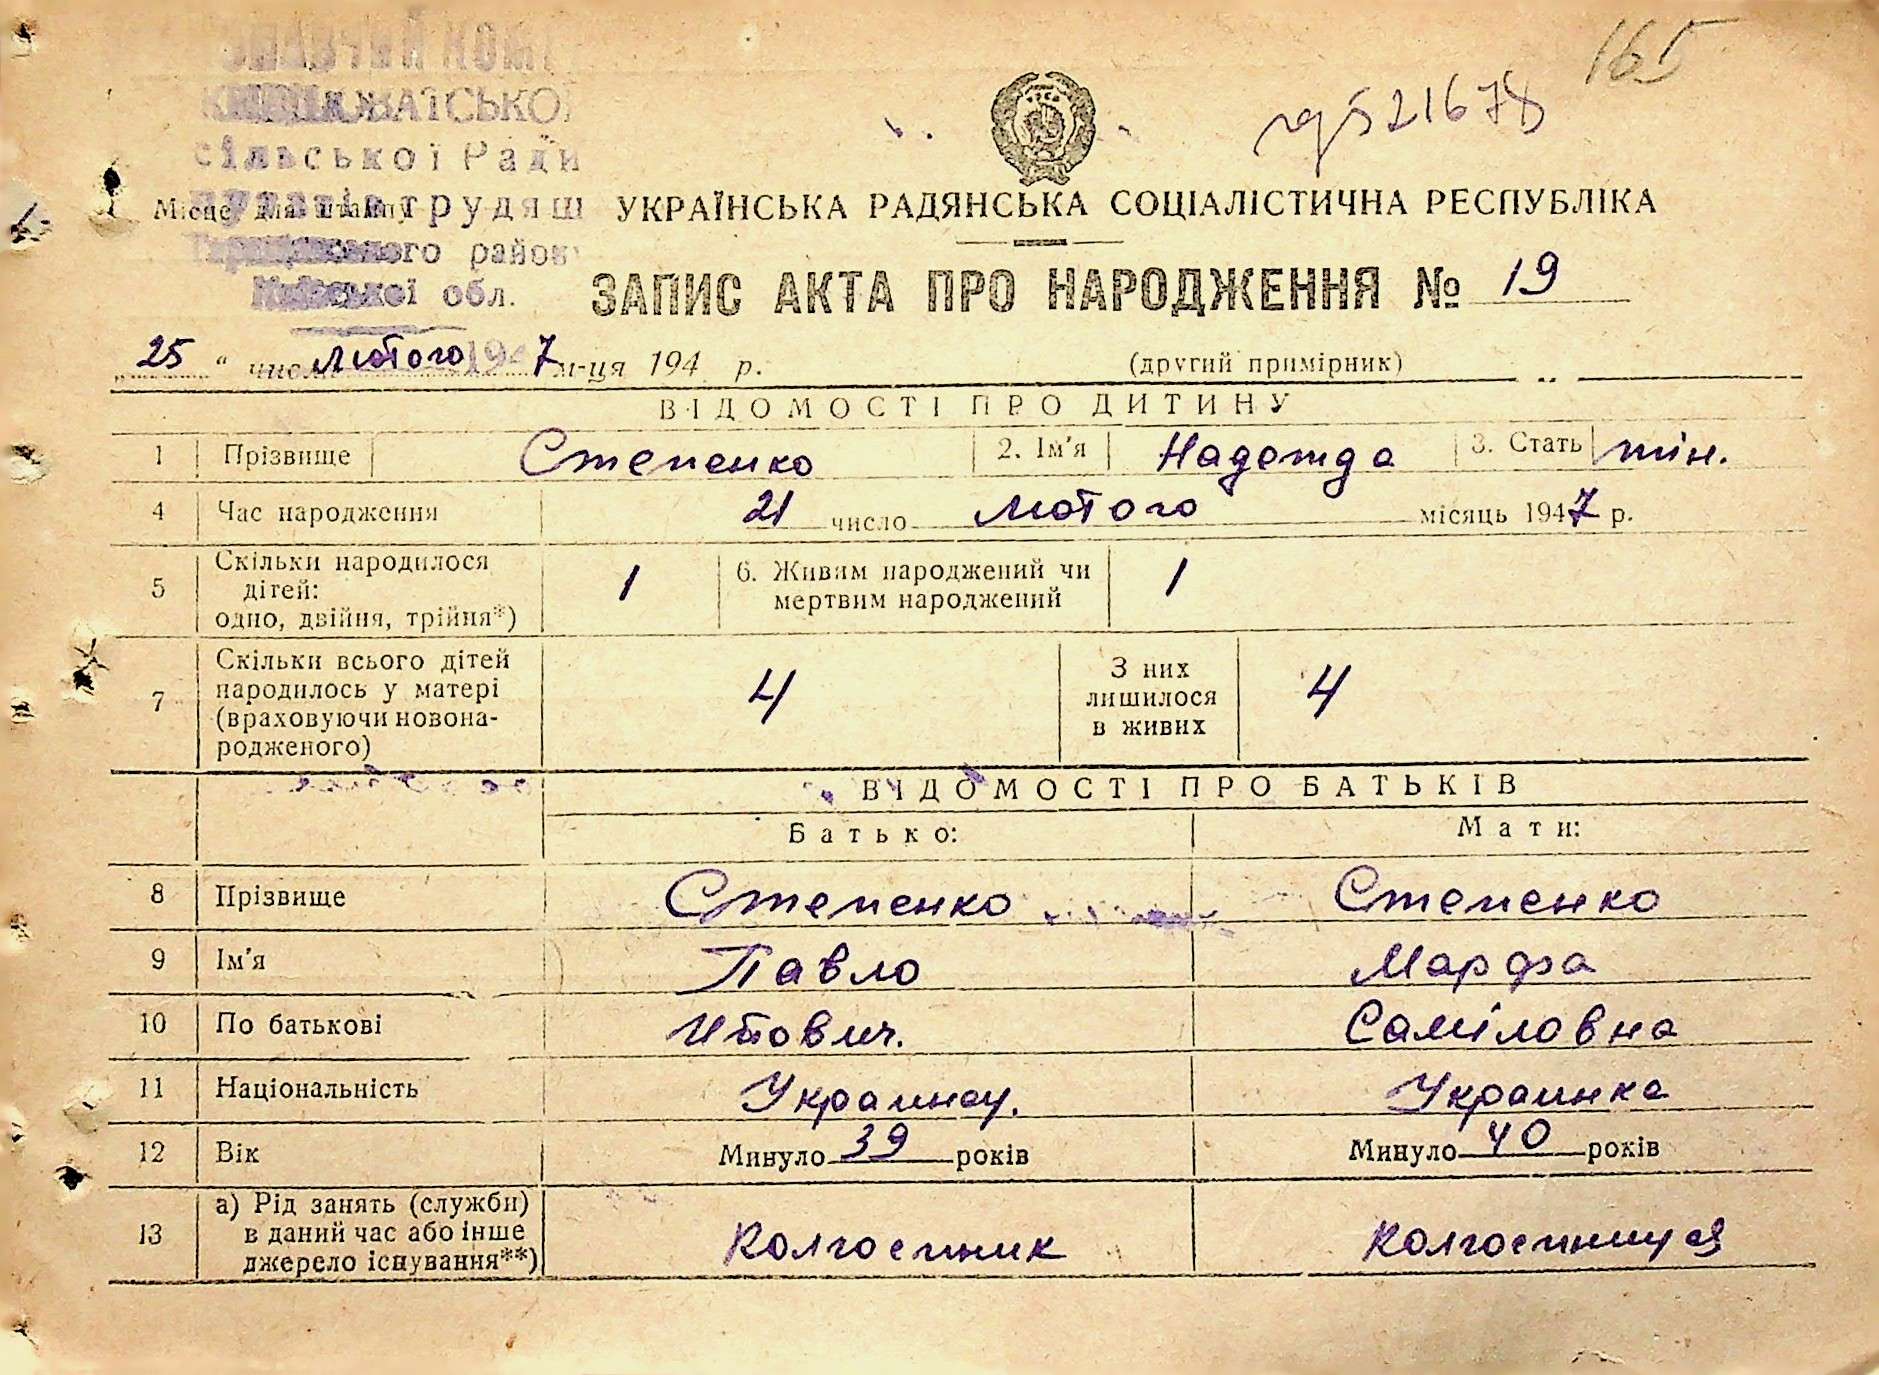 165
521678
сільської Ради
трудящ
Місце для штампу
району
обл.
УКРАЇНСЬКА РАДЯНСЬКА СОЦІАЛІСТИЧНА РЕСПУБЛІКА
ЗАПИС АКТА ПРО НАРОДЖЕННЯ № 19
„25“ числа лютого 1947 м-ця 194 р. (другий примірник)
ВІДОМОСТІ ПРО ДИТИНУ
1 Прізвище Степенко 2. Ім'я Надежда 3. Стать жін.
4 Час народження 21 число лютого місяць 1947 р.
5 Скільки народилося
дітей:
одно, двійня, трійня*) 1 6. Живим народжений чи
мертвим народжений 1
7 Скільки всього дітей
народилось у матері
(враховуючи новона-
родженого) 4 З них
лишилося
в живих 4
ВІДОМОСТІ ПРО БАТЬКІВ
Батько: Мати:
8 Прізвище Степенко Степенко
9 Ім'я Павло Марфа
10 По батькові Ітович. Саміловна
11 Національність Украинец. Украинка
12 Вік Минуло 39 років Минуло 40 років
13 а) Рід занять (служби)
в даний час або інше
джерело існування**) Колгоспник Колгоспниця